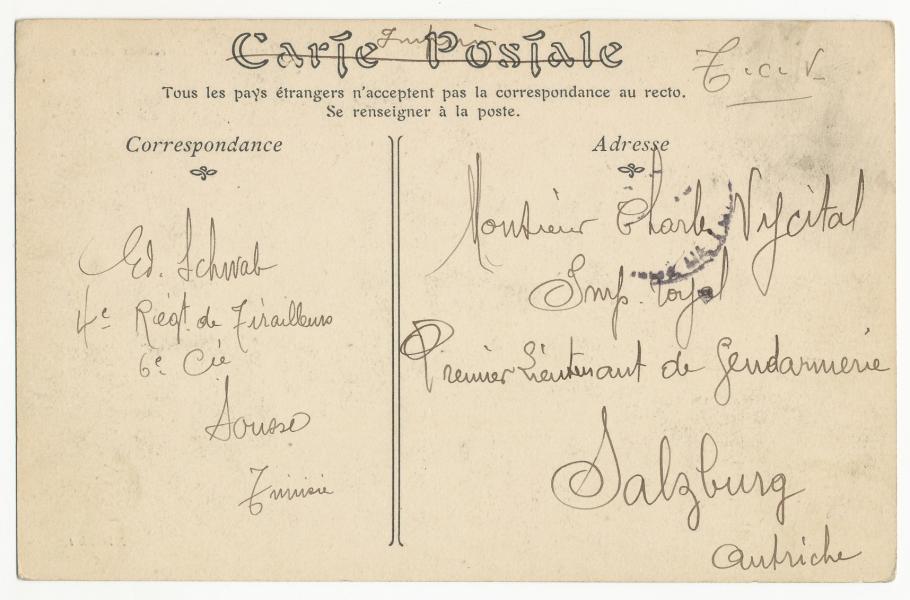 Carte Postale
Imprimé
T.C.V.
Tous les pays étrangers n'acceptent pas la correspondance au recto.
Se renseigner à la poste.
Correspondance
Ed. Schwab
4e Régt de Tirailleurs
6e Cie
Sousse
Tunisie
Adresse
Monsieur Charles Vycital
Imp. royal
Premier Lieutenant de Gendarmerie
Salzburg
Autriche